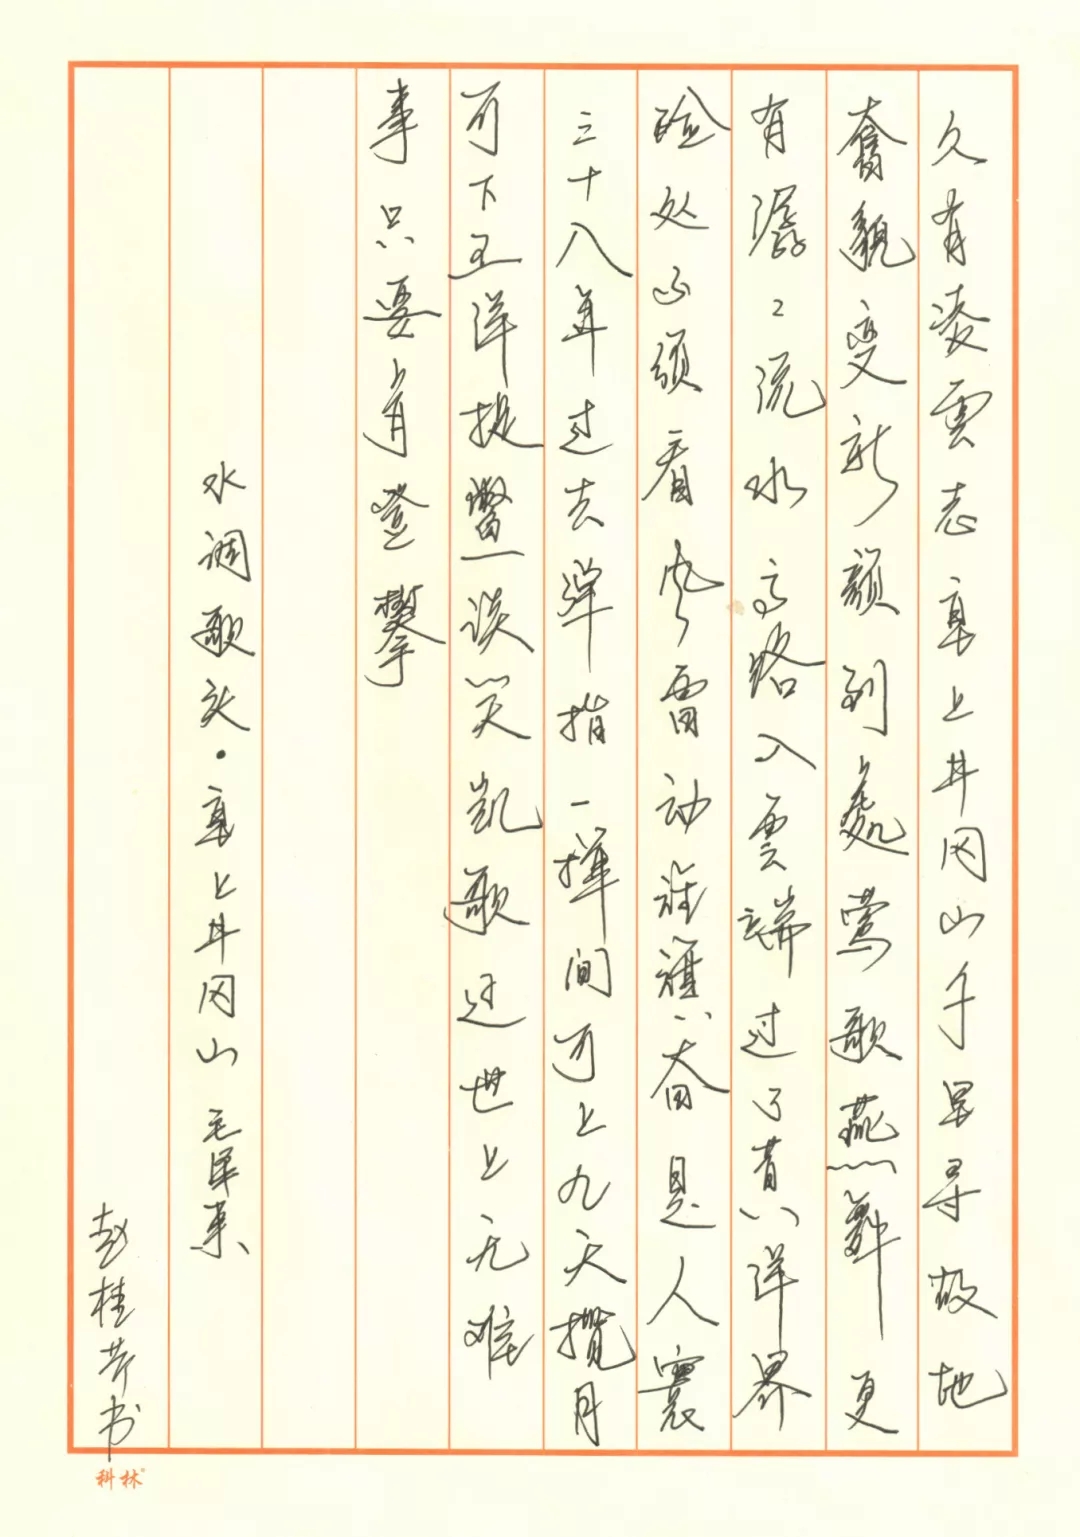 久有凌雲志重上井冈山千里寻故地
舊貌变新颜到處莺歌燕舞更
有潺〻流水高路入雲端过了黄洋界
险处不须看风雷动旌旗奋是人寰
三十八年过去弹指一挥间可上九天揽月
可下五洋捉鳖谈笑凯歌还世上无难
事只要肯登攀
水调歌头·重上井冈山 毛泽东
赵桂芳书
科林